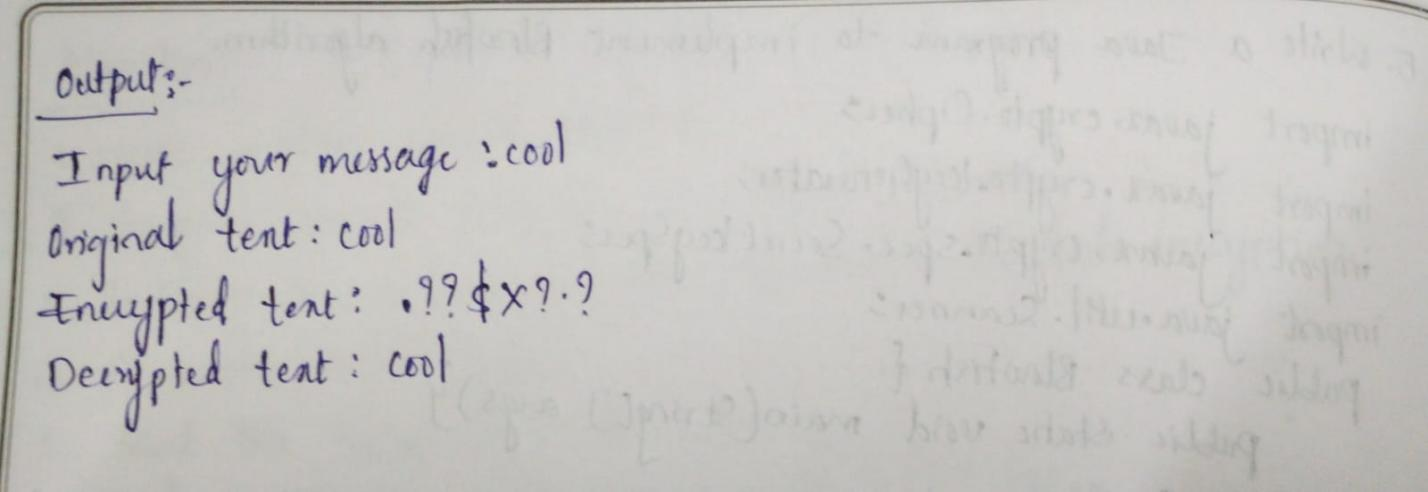 Output:-
Input your message : cool
Original text : cool
Encrypted text : .??$x?.?
Decrypted text : cool